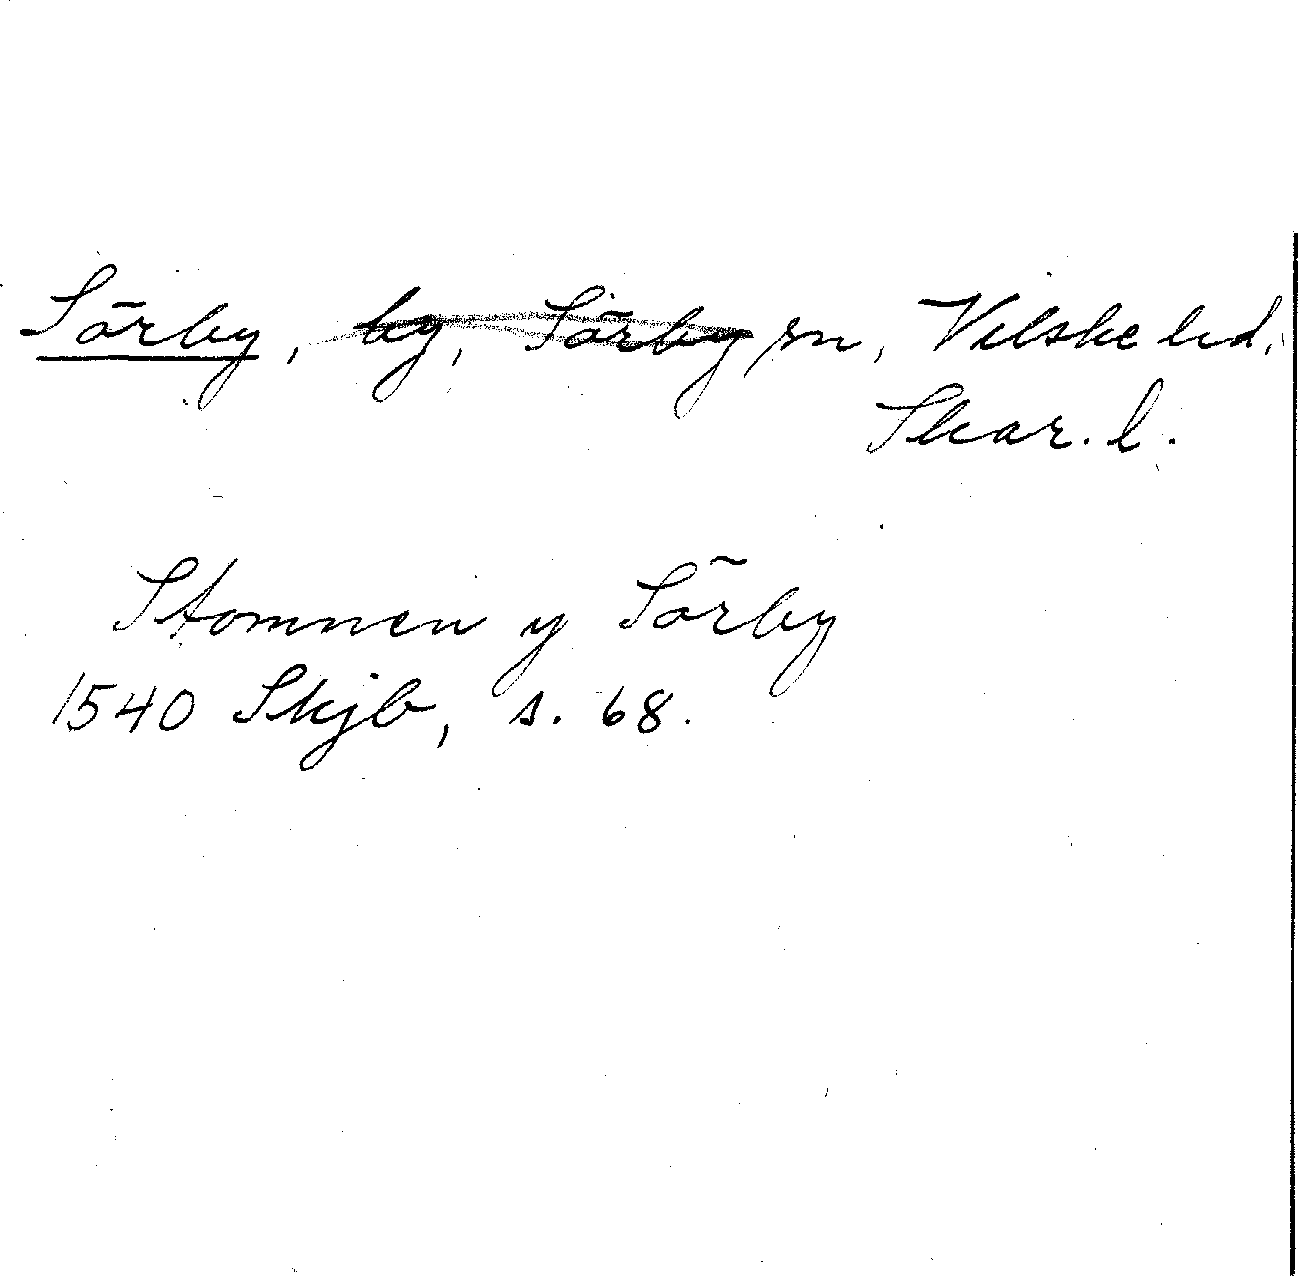 Sörby, by, Sörby sn, Vilske hd.
Skar. l.
Stomnen y Sörby
1540 Skjb, s. 68.